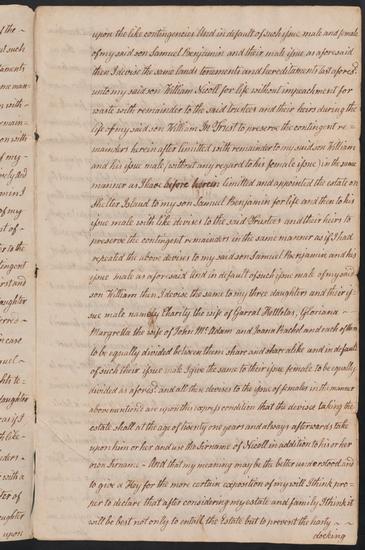 upon the like contingencies And in default of such issue male and female
of my said son Samuel Benjamin and their male issue as aforesaid
then I devise the same lands tenements and hereditaments last afores.d
unto my said son William Nicoll for life without impeachment for
waste with remainder to the said trustees and their heirs during the
life of my said son William In Trust to preserve the contingent re-
mainders herein after limitted with remainder to my said son William
and his issue male (without any regard to his female issue) in the same
manner as I have before herein limitted and appointed the estate on
Shelter Island to my son Samuel Benjamin for life and then to his
issue male with like devises to the said Trustees and their heirs to
preserve the contingent remainders in the same manner as if I had
repeated the above devises to my said son Samuel Benjamin and his
issue male as afore said And in default of such issue male of my said
son William then I devise the same to my three daughters and their is-
sue male namely Charity the wife of Garrat Gloriana
Margretta the wife of John McAdam and Joana Rachel and each of them
to be equally divided between them share and share alike and in default
of such their issue male I give the same to their issue female to be equally
divided as afores.d and all these devises to the issue of females in the manner
abovementioned are upon this express condition that the devisee taking the
estate shall at the age of twenty one years and always afterwards take
upon him or her and use the Sirname of Nicoll in addition to his or her
own Sirname - And that my meaning may be the better understood and
to give a Key for the more certain exposition of my will I think pro-
per to declare that after considering my estate and family I think it
will be best not only to entail the Estate but to prevent the hasty
docking